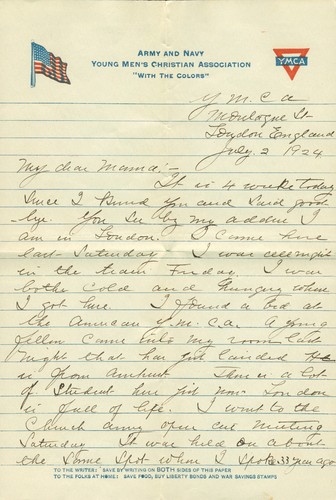 ARMY AND NAVY
YOUNG MEN'S CHRISTIAN ASSOCIATION
"WITH THE COLORS"
YMCA
Y M. C a
St
London England
July 2 1924
My dear Mama:-
It is 4 weeks today
since I kissed you and said good-
bye. You see by my address I
am in London. I came here
last Saturday. I was all night
in the train Friday. I was
both cold and hungry when
I got here. I found a bed at
the American Y.M.C.a. A young
fellow came into my room last
night that has just landed He
is from Amherst. There is a lot
of Student here just now. London
is full of life. I went to the
Church army open air meeting
Saturday. It was held on about
the same spot where I spoke 33 years ago
TO THE WRITER: SAVE BY WRITING ON BOTH SIDES OF THIS PAPER
TO THE FOLKS AT HOME: SAVE FOOD, BUY LIBERTY BONDS AND WAR SAVINGS STAMPS